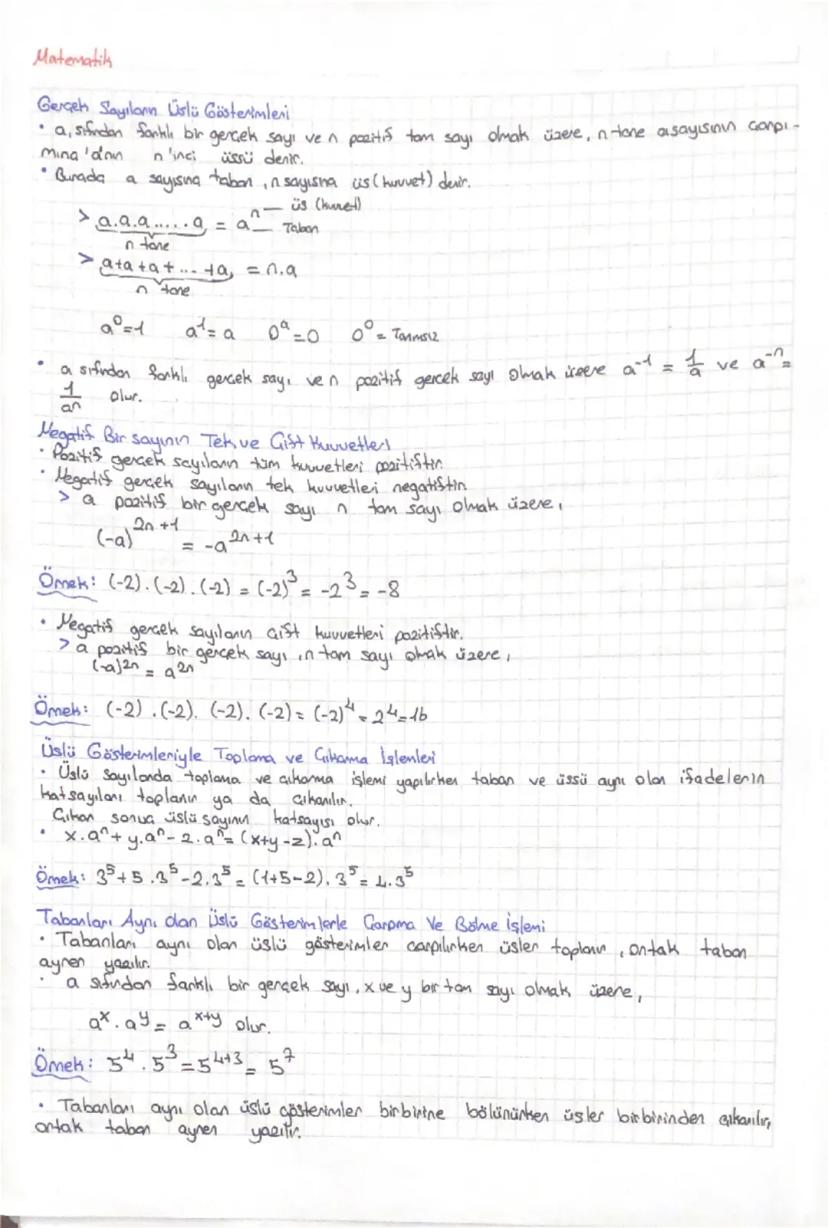 Matematik
Gerçek Sayıların Üslü Gösterimleri
• a, sıfırdan farklı bir gerçek sayı ve n pozitif tam sayı olmak üzere, n tane a sayısının çarpı-
mına 'a'nın n'inci üssü denir.
• Burada a sayısına taban, n sayısına üs (kuvvet) denir.
> a.a.a.....a = aⁿ — üs (kuvvet)
— Taban
n tane
> a+a+a+...+a = n.a
n tane
a⁰=1 a¹=a 0ᵃ=0 0⁰= Tanımsız
• a sıfırdan farklı gerçek sayı ve n pozitif gerçek sayı olmak üzere a⁻¹ = 1/a ve a⁻ⁿ=
1/aⁿ olur.
Negatif Bir sayının Tek ve Çift Kuvvetleri
• Pozitif gerçek sayıların tüm kuvvetleri pozitiftir.
• Negatif gerçek sayıların tek kuvvetleri negatiftir.
> a pozitif bir gerçek sayı n tam sayı olmak üzere,
(-a)²ⁿ⁺¹ = -a²ⁿ⁺¹
Örnek: (-2).(-2).(-2) = (-2)³ = -2³ = -8
• Negatif gerçek sayıların çift kuvvetleri pozitiftir.
> a pozitif bir gerçek sayı, n tam sayı olmak üzere,
(-a)²ⁿ = a²ⁿ
Örnek: (-2).(-2).(-2).(-2) = (-2)⁴ = 2⁴=16
Üslü Gösterimleriyle Toplama ve Çıkarma İşlemleri
• Üslü sayılarda toplama ve çıkarma işlemi yapılırken taban ve üssü aynı olan ifadelerin
katsayıları toplanır ya da çıkarılır.
Çıkan sonuç üslü sayının katsayısı olur.
• x.aⁿ+y.aⁿ-z.aⁿ=(x+y-z).aⁿ
Örnek: 3⁵+5.3⁵-2.3⁵=(1+5-2).3⁵=4.3⁵
Tabanları Aynı olan Üslü Gösterimlerle Çarpma Ve Bölme İşlemi
• Tabanları aynı olan üslü gösterimler çarpılırken üsler toplanır, ortak taban
aynen yazılır.
• a sıfırdan farklı bir gerçek sayı, x ve y bir tam sayı olmak üzere,
aˣ.aʸ = aˣ⁺ʸ olur.
Örnek: 5⁴.5³=5⁴⁺³=5⁷
• Tabanları aynı olan üslü gösterimler birbirine bölünürken üsler birbirinden çıkarılır,
ortak taban aynen yazılır.